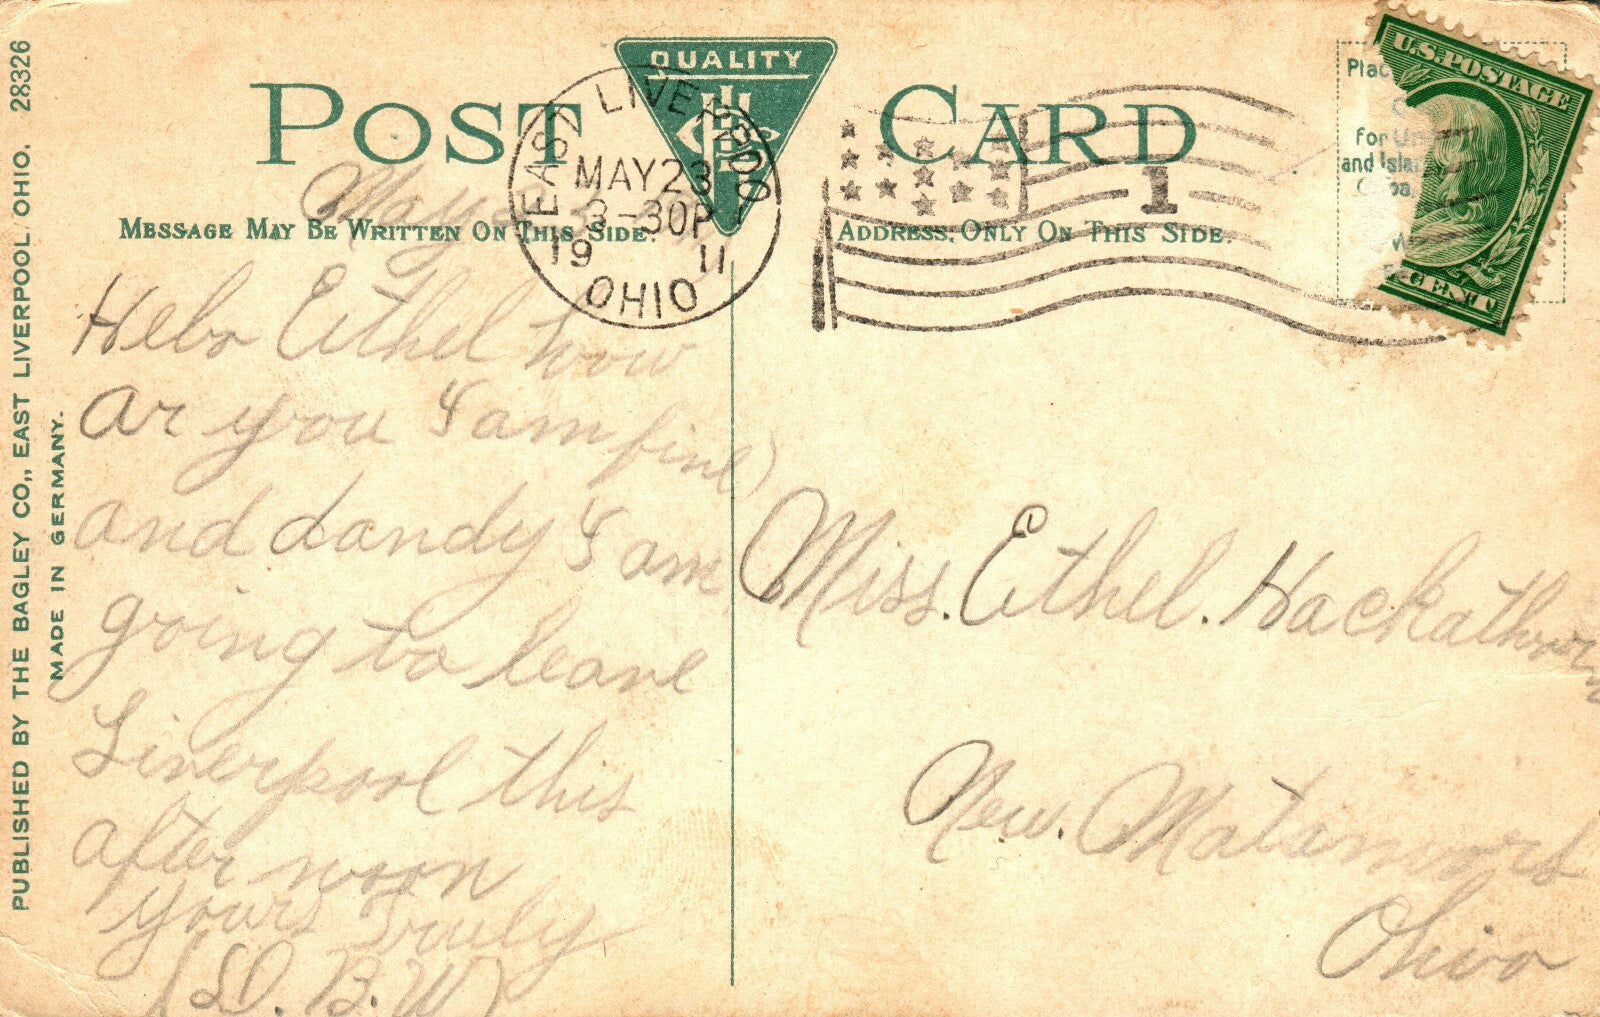 PUBLISHED BY THE BAGLEY CO., EAST LIVERPOOL, OHIO. 28326
MADE IN GERMANY.
POST CARD
QUALITY
EAST LIVERPOOL
MAY 23
3-30P
19 11
OHIO
1
U.S. POSTAGE
CENT
Plac
for Un
and Isla
MESSAGE MAY BE WRITTEN ON THIS SIDE.
ADDRESS, ONLY ON THIS SIDE.
May
Helo Ethel how
ar you I am fine
and dandy I am
going to leave
Liverpool this
after noon
yours Truly
Miss. Ethel. Hackathorn
New. Matamors
Ohio